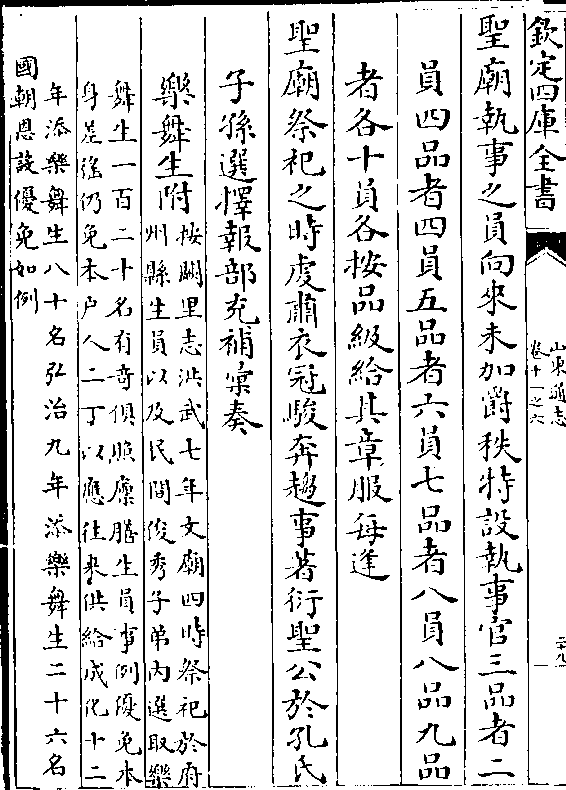 欽定四庫全書
山東通志
卷十一之六
聖廟執事之員向來未加爵秩特設執事官三品者二
員四品者四員五品者六員七品者八員八品九品
者各十員各按品級給其章服每逢
聖廟祭祀之時虔肅衣冠駿奔趨事著衍聖公於孔氏
子孫選擇報部充補彙奏
樂舞生附
按闕里志洪武七年文廟四時祭祀於府
州縣生員以及民間俊秀子弟內選取樂
舞生一百二十名有奇俱照廩膳生員事例優免本
身差徭仍免本户人二丁以應往來供給成化十二
年添樂舞生八十名弘治九年添樂舞生二十六名
國朝恩設優免如例